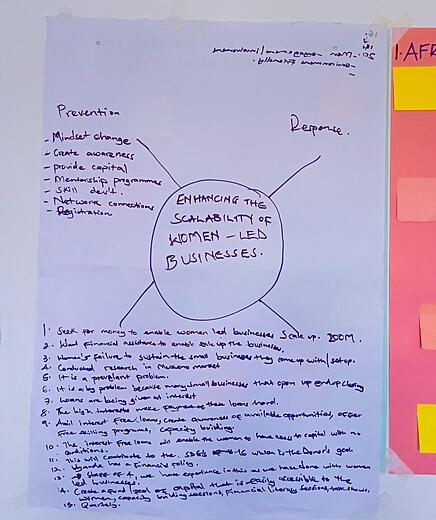 Prevention
- Mindset change
- Create awareness
- provide capital
- Mentorship programmes
- Skill dev't.
- Network connections
- Registration
Response.
ENHANCING THE
SCALABILITY OF
WOMEN - LED
BUSINESSES.
1. Seek for money to enable women led businesses Scale up.
2. Want financial assistance to enable scale up the business.
3. Women's failure to sustain the small businesses they come up with/setup.
4. Conducted research in market
5. It is a prevalent problem.
6. It is a big problem because many small businesses that open up endup closing
7. Loans are being given at interest
8. The high interests make payment of these loans hard.
9. Avail Interest free loans, create awareness of available opportunities, offer
free skilling programs, capacity building.
10. The interest free loans will enable the women to have access to capital with no
conditions.
11. This will contribute to the SDGs which is the Donor's goal
12. Uganda has a financial policy.
13. we have experience in this as we have done with women
led businesses.
14. Create a fund pool of capital that is easily accessible to the
women, capacity building sessions, financial literacy sessions,
15. Quarterly.
1. AFR